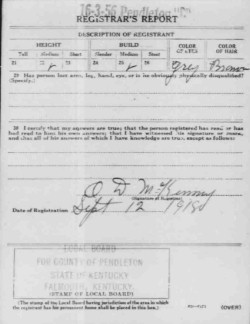 16-3-56 Pendleton
REGISTRAR'S REPORT
DESCRIPTION OF REGISTRANT
HEIGHT BUILD COLOR OF EYES COLOR OF HAIR
Tall Medium Short Slender Medium Stout
21 22 23 24 25 26 27 28
Grey Brown
29 Has person lost arm, leg, hand, eye, or is he obviously physically disqualified?
(Specify.)
30 I certify that my answers are true; that the person registered has read or has
had read to him his own answers; that I have witnessed his signature or mark,
and that all of his answers of which I have knowledge are true, except as follows:
O D McKenney
(Signature of Registrar)
Date of Registration Sept 12 1918
LOCAL BOARD
FOR COUNTY OF PENDLETON
STATE OF KENTUCKY
FALMOUTH, KENTUCKY.
(STAMP OF LOCAL BOARD)
(The stamp of the Local Board having jurisdiction of the area in which
the registrant has his permanent home shall be placed in this box.)
(OVER)